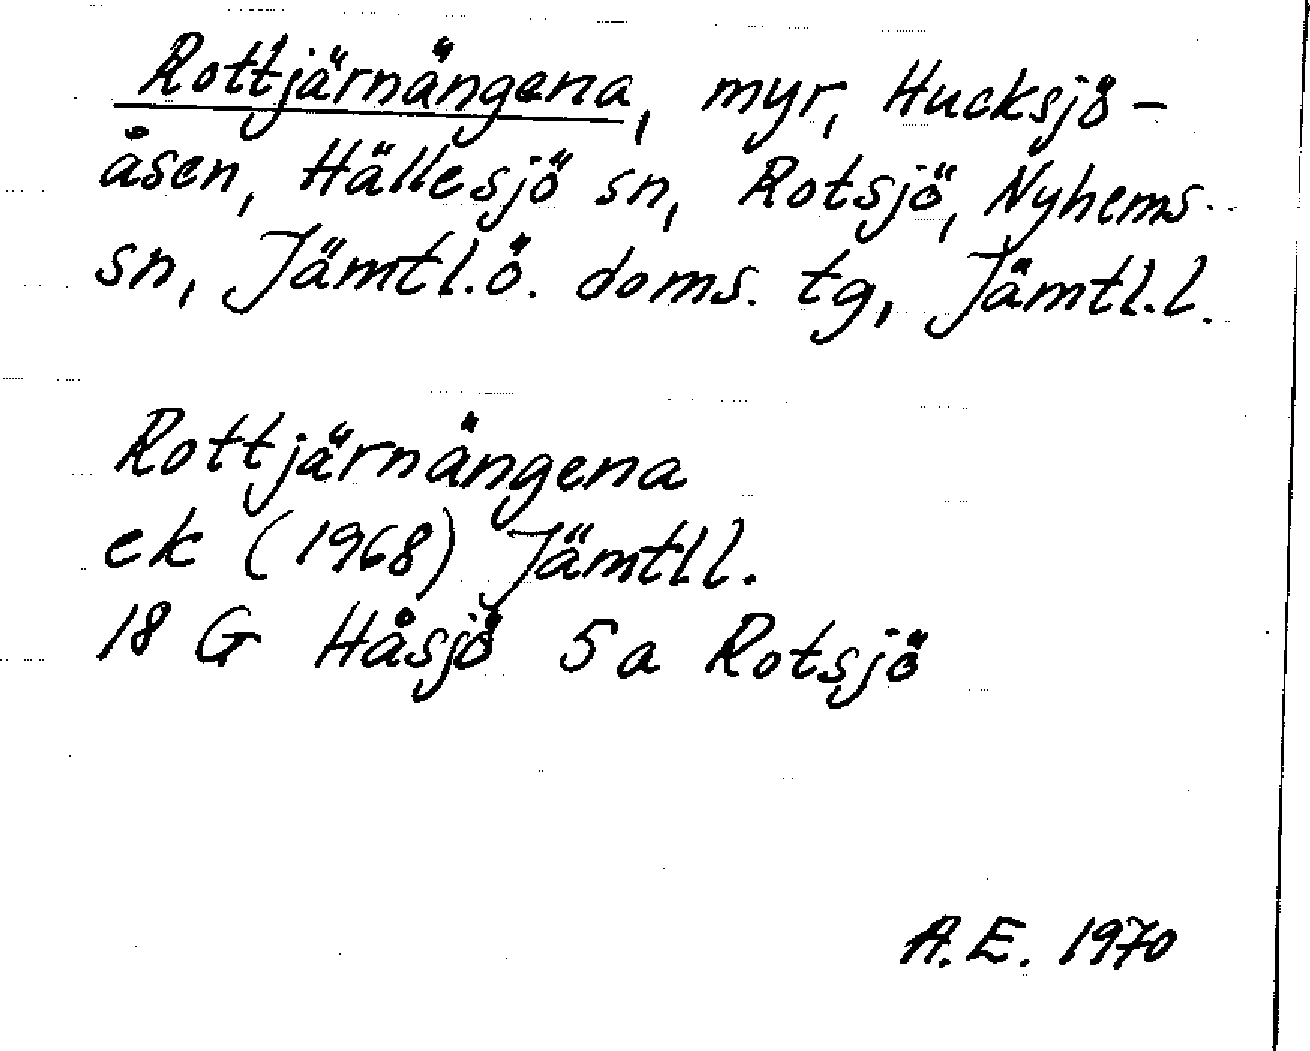 Rottjärnängena, myr, Hucksjö-
åsen, Hällesjö sn, Rotsjö, Nyhems
sn, Jämtl.ö. doms. tg, Jämtl.l.
Rottjärnängena
ek (1968) Jämtll.
18 G Håsjö 5a Rotsjö
A.E. 1970